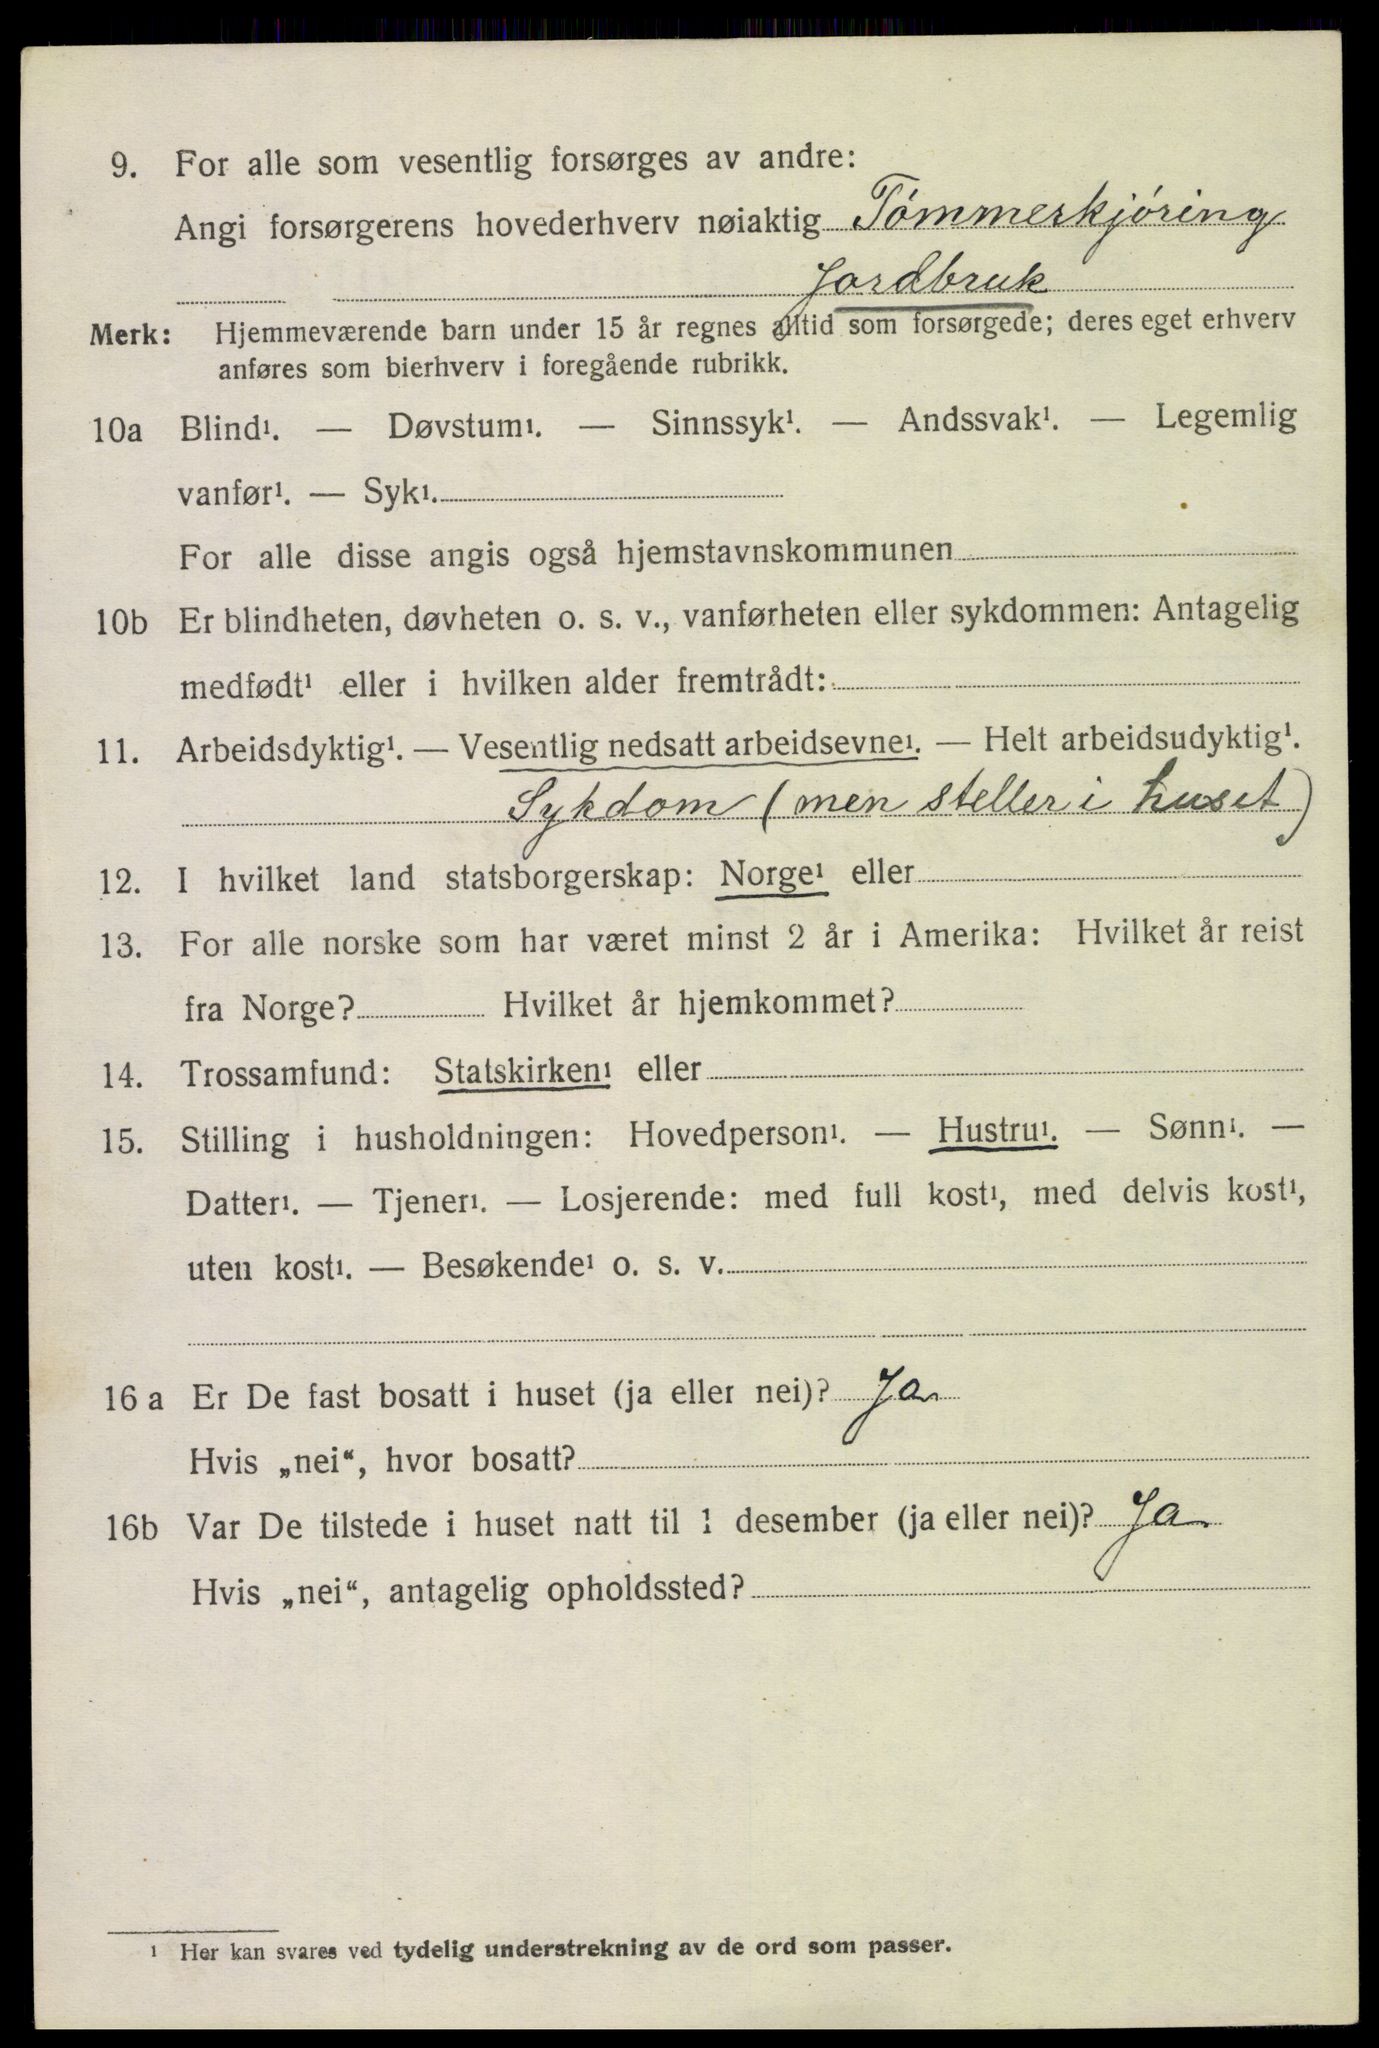 9. For alle som vesentlig forsørges av andre:
Angi forsørgerens hovederhverv nøiaktig Tømmerkjøring
Jordbruk
Merk: Hjemmeværende barn under 15 år regnes alltid som forsørgede; deres eget erhverv
anføres som bierhverv i foregående rubrikk.
10a Blind¹. — Døvstum¹. — Sinnssyk¹. — Andssvak¹. — Legemlig
vanfør¹. — Syk¹.
For alle disse angis også hjemstavnskommunen
10b Er blindheten, døvheten o. s. v., vanførheten eller sykdommen: Antagelig
medfødt¹ eller i hvilken alder fremtrådt:
11. Arbeidsdyktig¹. — Vesentlig nedsatt arbeidsevne¹. — Helt arbeidsudyktig¹.
Sykdom (men steller i huset)
12. I hvilket land statsborgerskap: Norge¹ eller
13. For alle norske som har været minst 2 år i Amerika: Hvilket år reist
fra Norge? Hvilket år hjemkommet?
14. Trossamfund: Statskirken¹ eller
15. Stilling i husholdningen: Hovedperson¹. — Hustru¹. — Sønn¹. —
Datter¹. — Tjener¹. — Losjerende: med full kost¹, med delvis kost¹,
uten kost¹. — Besøkende¹ o. s. v.
16 a Er De fast bosatt i huset (ja eller nei)? Ja
Hvis „nei“, hvor bosatt?
16b Var De tilstede i huset natt til 1 desember (ja eller nei)? Ja
Hvis „nei“, antagelig opholdssted?
¹ Her kan svares ved tydelig understrekning av de ord som passer.